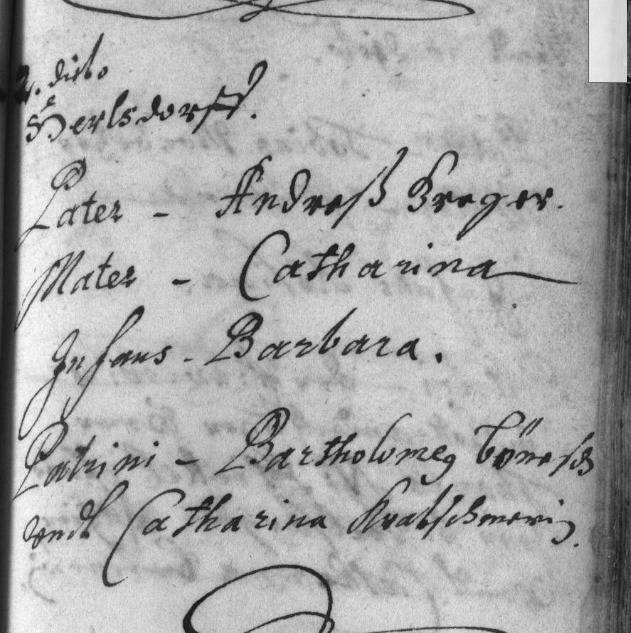 2. dito
Herlsdorff.
Pater - Andreß Kreger.
Mater - Catharina
Infans - Barbara.
Patrini - Bartholomeg
vndt Catharina Kratschmerin.